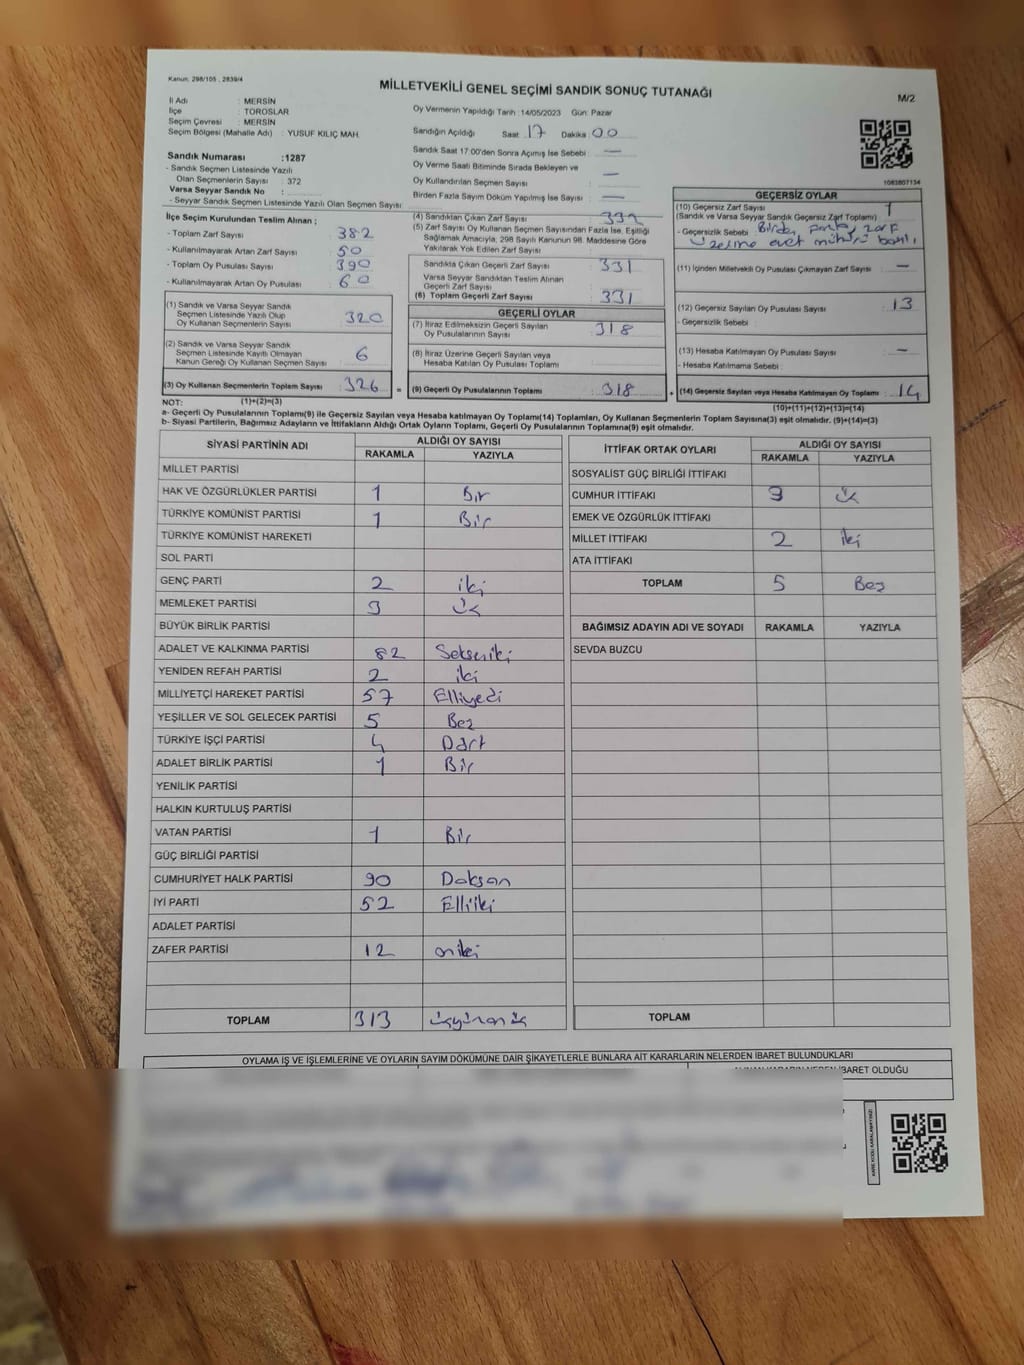 Kanun: 298/105 , 2839/4
MİLLETVEKİLİ GENEL SEÇİMİ SANDIK SONUÇ TUTANAĞI
M/2
İl Adı : MERSİN
İlçe : TOROSLAR
Seçim Çevresi : MERSİN
Seçim Bölgesi (Mahalle Adı) : YUSUF KILIÇ MAH.
Sandık Numarası :1287
- Sandık Seçmen Listesinde Yazılı
Olan Seçmenlerin Sayısı : 372
Varsa Seyyar Sandık No :
- Seyyar Sandık Seçmen Listesinde Yazılı Olan Seçmen Sayısı
Oy Vermenin Yapıldığı Tarih :14/05/2023 Gün: Pazar
Sandığın Açıldığı Saat 17 Dakika 00
Sandık Saat 17.00'den Sonra Açımış İse Sebebi : —
Oy Verme Saati Bitiminde Sırada Bekleyen ve
Oy Kullandırılan Seçmen Sayısı : —
Birden Fazla Sayım Döküm Yapılmış İse Sayısı : —
1083807134
İlçe Seçim Kurulundan Teslim Alınan ;
- Toplam Zarf Sayısı : 382
- Kullanılmayarak Artan Zarf Sayısı : 50
- Toplam Oy Pusulası Sayısı : 390
- Kullanılmayarak Artan Oy Pusulası : 60
(1) Sandık ve Varsa Seyyar Sandık
Seçmen Listesinde Yazılı Olup
Oy Kullanan Seçmenlerin Sayısı : 320
(2) Sandık ve Varsa Seyyar Sandık
Seçmen Listesinde Kayıtlı Olmayan
Kanun Gereği Oy Kullanan Seçmen Sayısı : 6
(3) Oy Kullanan Seçmenlerin Toplam Sayısı : 326
(4) Sandıktan Çıkan Zarf Sayısı : 332
(5) Zarf Sayısı Oy Kullanan Seçmen Sayısından Fazla İse, Eşitliği
Sağlamak Amacıyla, 298 Sayılı Kanunun 98. Maddesine Göre
Yakılarak Yok Edilen Zarf Sayısı
Sandıkta Çıkan Geçerli Zarf Sayısı : 331
Varsa Seyyar Sandıktan Teslim Alınan
Geçerli Zarf Sayısı
(6) Toplam Geçerli Zarf Sayısı : 331
GEÇERLİ OYLAR
(7) İtiraz Edilmeksizin Geçerli Sayılan
Oy Pusulalarının Sayısı : 318
(8) İtiraz Üzerine Geçerli Sayılan veya
Hesaba Katılan Oy Pusulası Toplamı
= (9) Geçerli Oy Pusulalarının Toplamı : 318
GEÇERSİZ OYLAR
(10) Geçersiz Zarf Sayısı
(Sandık ve Varsa Seyyar Sandık Geçersiz Zarf Toplamı) : 1
- Geçersizlik Sebebi : zarf
üzerine evet mührü
(11) İçinden Milletvekili Oy Pusulası Çıkmayan Zarf Sayısı : —
(12) Geçersiz Sayılan Oy Pusulası Sayısı : 13
- Geçersizlik Sebebi :
(13) Hesaba Katılmayan Oy Pusulası Sayısı : —
- Hesaba Katılmama Sebebi :
+ (14) Geçersiz Sayılan veya Hesaba Katılmayan Oy Toplamı : 14
NOT: (1)+(2)=(3) (10)+(11)+(12)+(13)=(14)
a- Geçerli Oy Pusulalarının Toplamı(9) ile Geçersiz Sayılan veya Hesaba katılmayan Oy Toplam(14) Toplamları, Oy Kullanan Seçmenlerin Toplam Sayısına(3) eşit olmalıdır. (9)+(14)=(3)
b- Siyasi Partilerin, Bağımsız Adayların ve İttifakların Aldığı Ortak Oyların Toplamı, Geçerli Oy Pusulalarının Toplamına(9) eşit olmalıdır.
SİYASİ PARTİNİN ADI ALDIĞI OY SAYISI
RAKAMLA YAZIYLA
MİLLET PARTİSİ
HAK VE ÖZGÜRLÜKLER PARTİSİ 1 Bir
TÜRKİYE KOMÜNİST PARTİSİ 1 Bir
TÜRKİYE KOMÜNİST HAREKETİ
SOL PARTİ
GENÇ PARTİ 2 iki
MEMLEKET PARTİSİ 3 üç
BÜYÜK BİRLİK PARTİSİ
ADALET VE KALKINMA PARTİSİ 82 Sekseniki
YENİDEN REFAH PARTİSİ 2 iki
MİLLİYETÇİ HAREKET PARTİSİ 57 Elliyedi
YEŞİLLER VE SOL GELECEK PARTİSİ 5 Beş
TÜRKİYE İŞÇİ PARTİSİ 4 Dört
ADALET BİRLİK PARTİSİ 1 Bir
YENİLİK PARTİSİ
HALKIN KURTULUŞ PARTİSİ
VATAN PARTİSİ 1 Bir
GÜÇ BİRLİĞİ PARTİSİ
CUMHURİYET HALK PARTİSİ 90 Doksan
İYİ PARTİ 52 Elliiki
ADALET PARTİSİ
ZAFER PARTİSİ 12 oniki
TOPLAM 313 üçyüzonüç
İTTİFAK ORTAK OYLARI ALDIĞI OY SAYISI
RAKAMLA YAZIYLA
SOSYALİST GÜÇ BİRLİĞİ İTTİFAKI
CUMHUR İTTİFAKI 3 üç
EMEK VE ÖZGÜRLÜK İTTİFAKI
MİLLET İTTİFAKI 2 iki
ATA İTTİFAKI
TOPLAM 5 Beş
BAĞIMSIZ ADAYIN ADI VE SOYADI RAKAMLA YAZIYLA
SEVDA BUZCU
TOPLAM
OYLAMA İŞ VE İŞLEMLERİNE VE OYLARIN SAYIM DÖKÜMÜNE DAİR ŞİKAYETLERLE BUNLARA AİT KARARLARIN NELERDEN İBARET BULUNDUKLARI
İBARET OLDUĞU